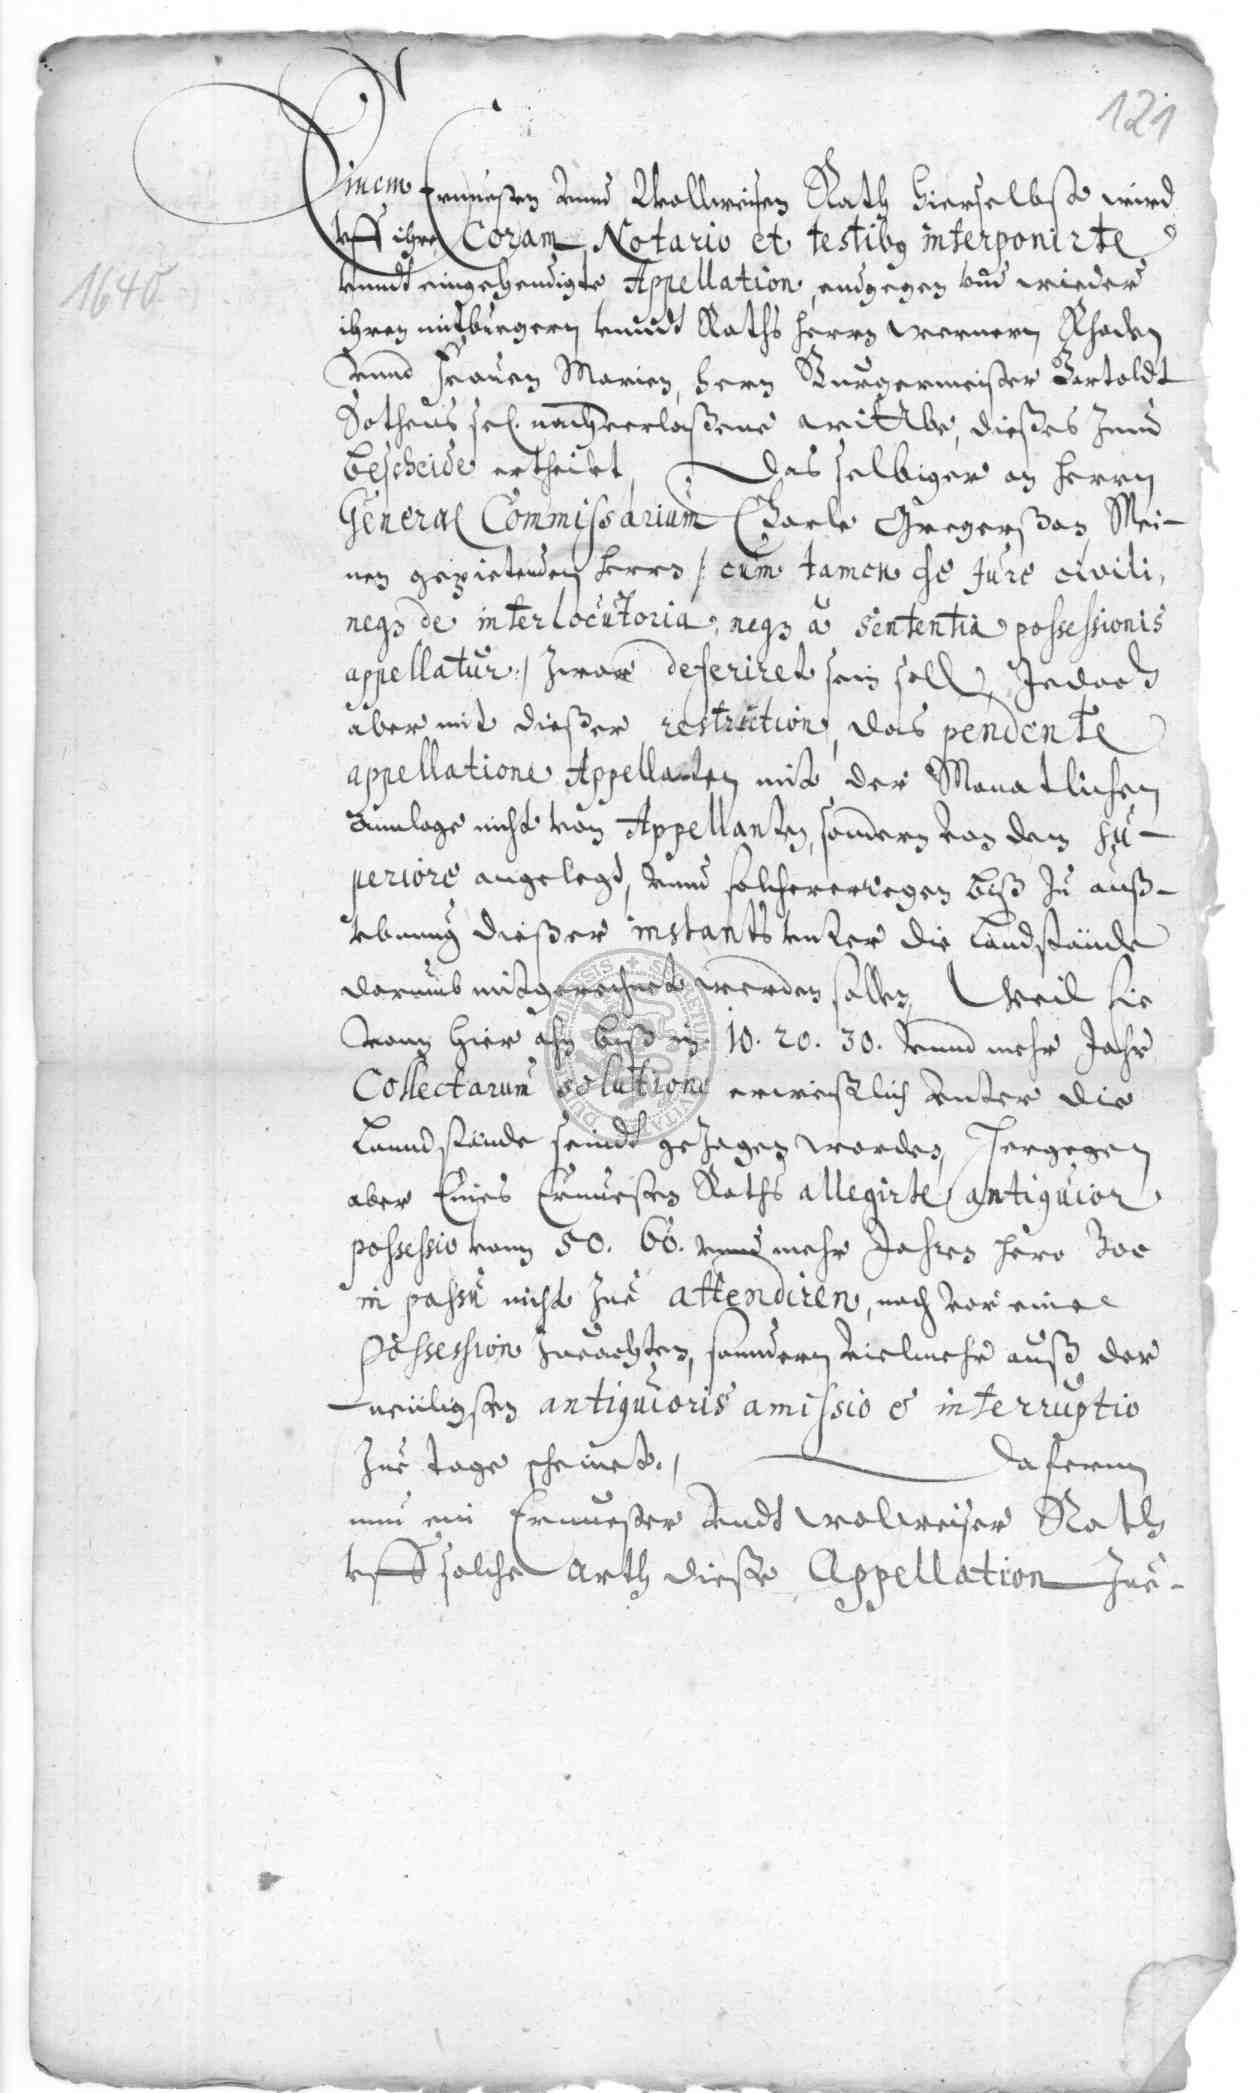 121
1640
Einem Ernuesten vnnd Wollweisen Rath hierselbst wird
vff ihre Coram Notario et testibq interponirte
vnndt eingehendigte Appellation, endgegen vnd wieder
ihren mitburgern vnndt Raths herrn wernern Rhoden
vnnd Frauen Marien, herrn Burgermeister Bartoldt
Sothens sel. nachverlaßene wittbe, dießes zum
bescheide ertheilt, Das selbiger an herrn
General Commissarium Carle Gregerßon, Mei-
nen gepietenden herrn /: cum tamen de Jure civili,
neqз de interlocutoria, neqз a sententia possessionis
appellatur :/ zwar deferiret sein soll, Jedoch
aber mit dießer restriction, das pendente
appellatione Appellaten mit der Monatlichen
annlage nicht von Appellanten, sondern von dem su-
periore angelegt, vnnd solcherwegen biß zu auß-
vbunng dießer instants vnter die Landstände
darumb mitgerechnet werden sollen, Weil sie
vonn hier ahn biß in 10. 20. 30. vnnd mehr Jahr
Collectarum solutione erweißlich vnter die
Lanndstände seindt gezogen worden, Hergegen
aber Eines Ernuesten Raths allegirte antiquior
possessio vonn 50. 60. vnnd mehr Jahren hero hoc
in passu nicht zue attendiren, noch vor eine
Possession zueachten, sonndern vielmehr auß der
neüligsten antiquioris amissio & interruptio
zue tage scheinet./ Dafernn
nun ein Ernuester vndt wolweiser Rath
vff solche arth dieße Appellation zue-